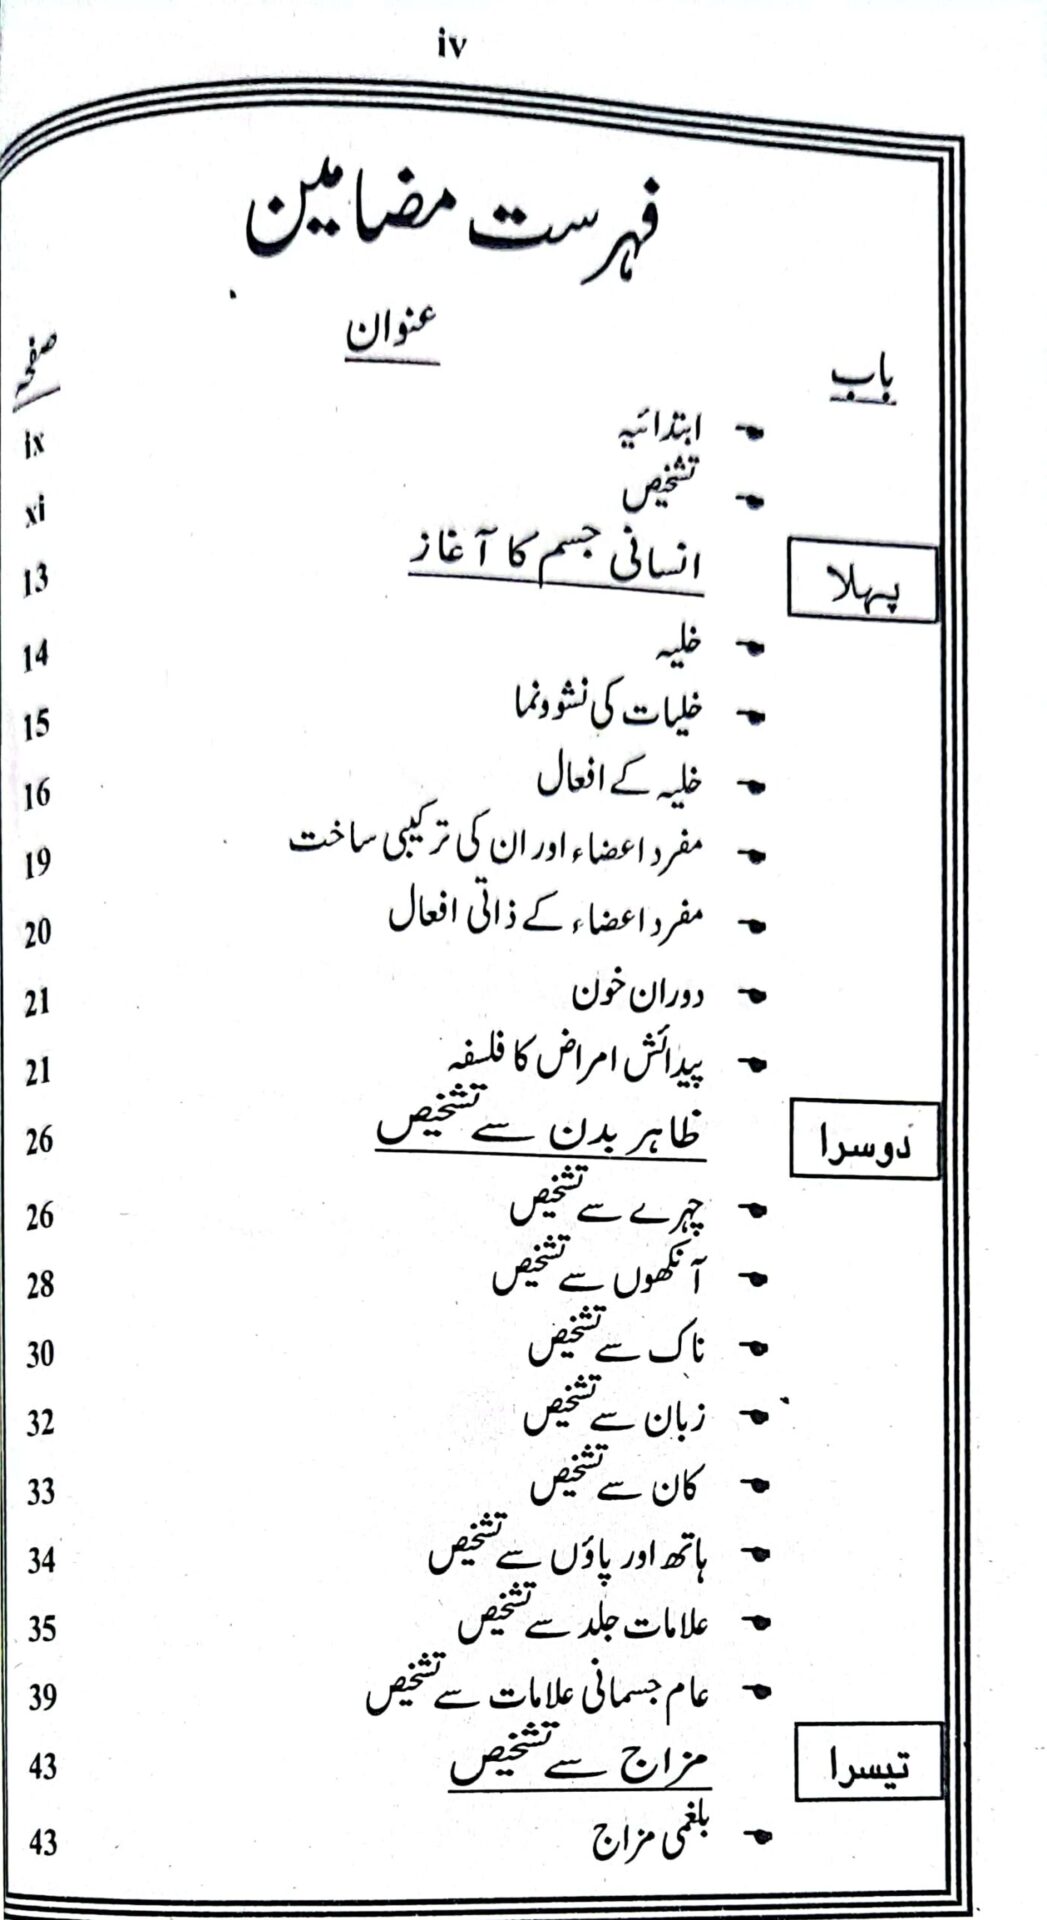 iv
فہرست مضامین
باب عنوان صفحہ
ابتدائیہ ix
تشخیص xi
پہلا انسانی جسم کا آغاز 13
خلیہ 14
خلیات کی نشوونما 15
خلیہ کے افعال 16
مفرد اعضاء اور ان کی ترکیبی ساخت 19
مفرد اعضاء کے ذاتی افعال 20
دوران خون 21
پیدائش امراض کا فلسفہ 21
دوسرا ظاہر بدن سے تشخیص 26
چہرے سے تشخیص 26
آنکھوں سے تشخیص 28
ناک سے تشخیص 30
زبان سے تشخیص 32
کان سے تشخیص 33
ہاتھ اور پاؤں سے تشخیص 34
علامات جلد سے تشخیص 35
عام جسمانی علامات سے تشخیص 39
تیسرا مزاج سے تشخیص 43
بلغمی مزاج 43